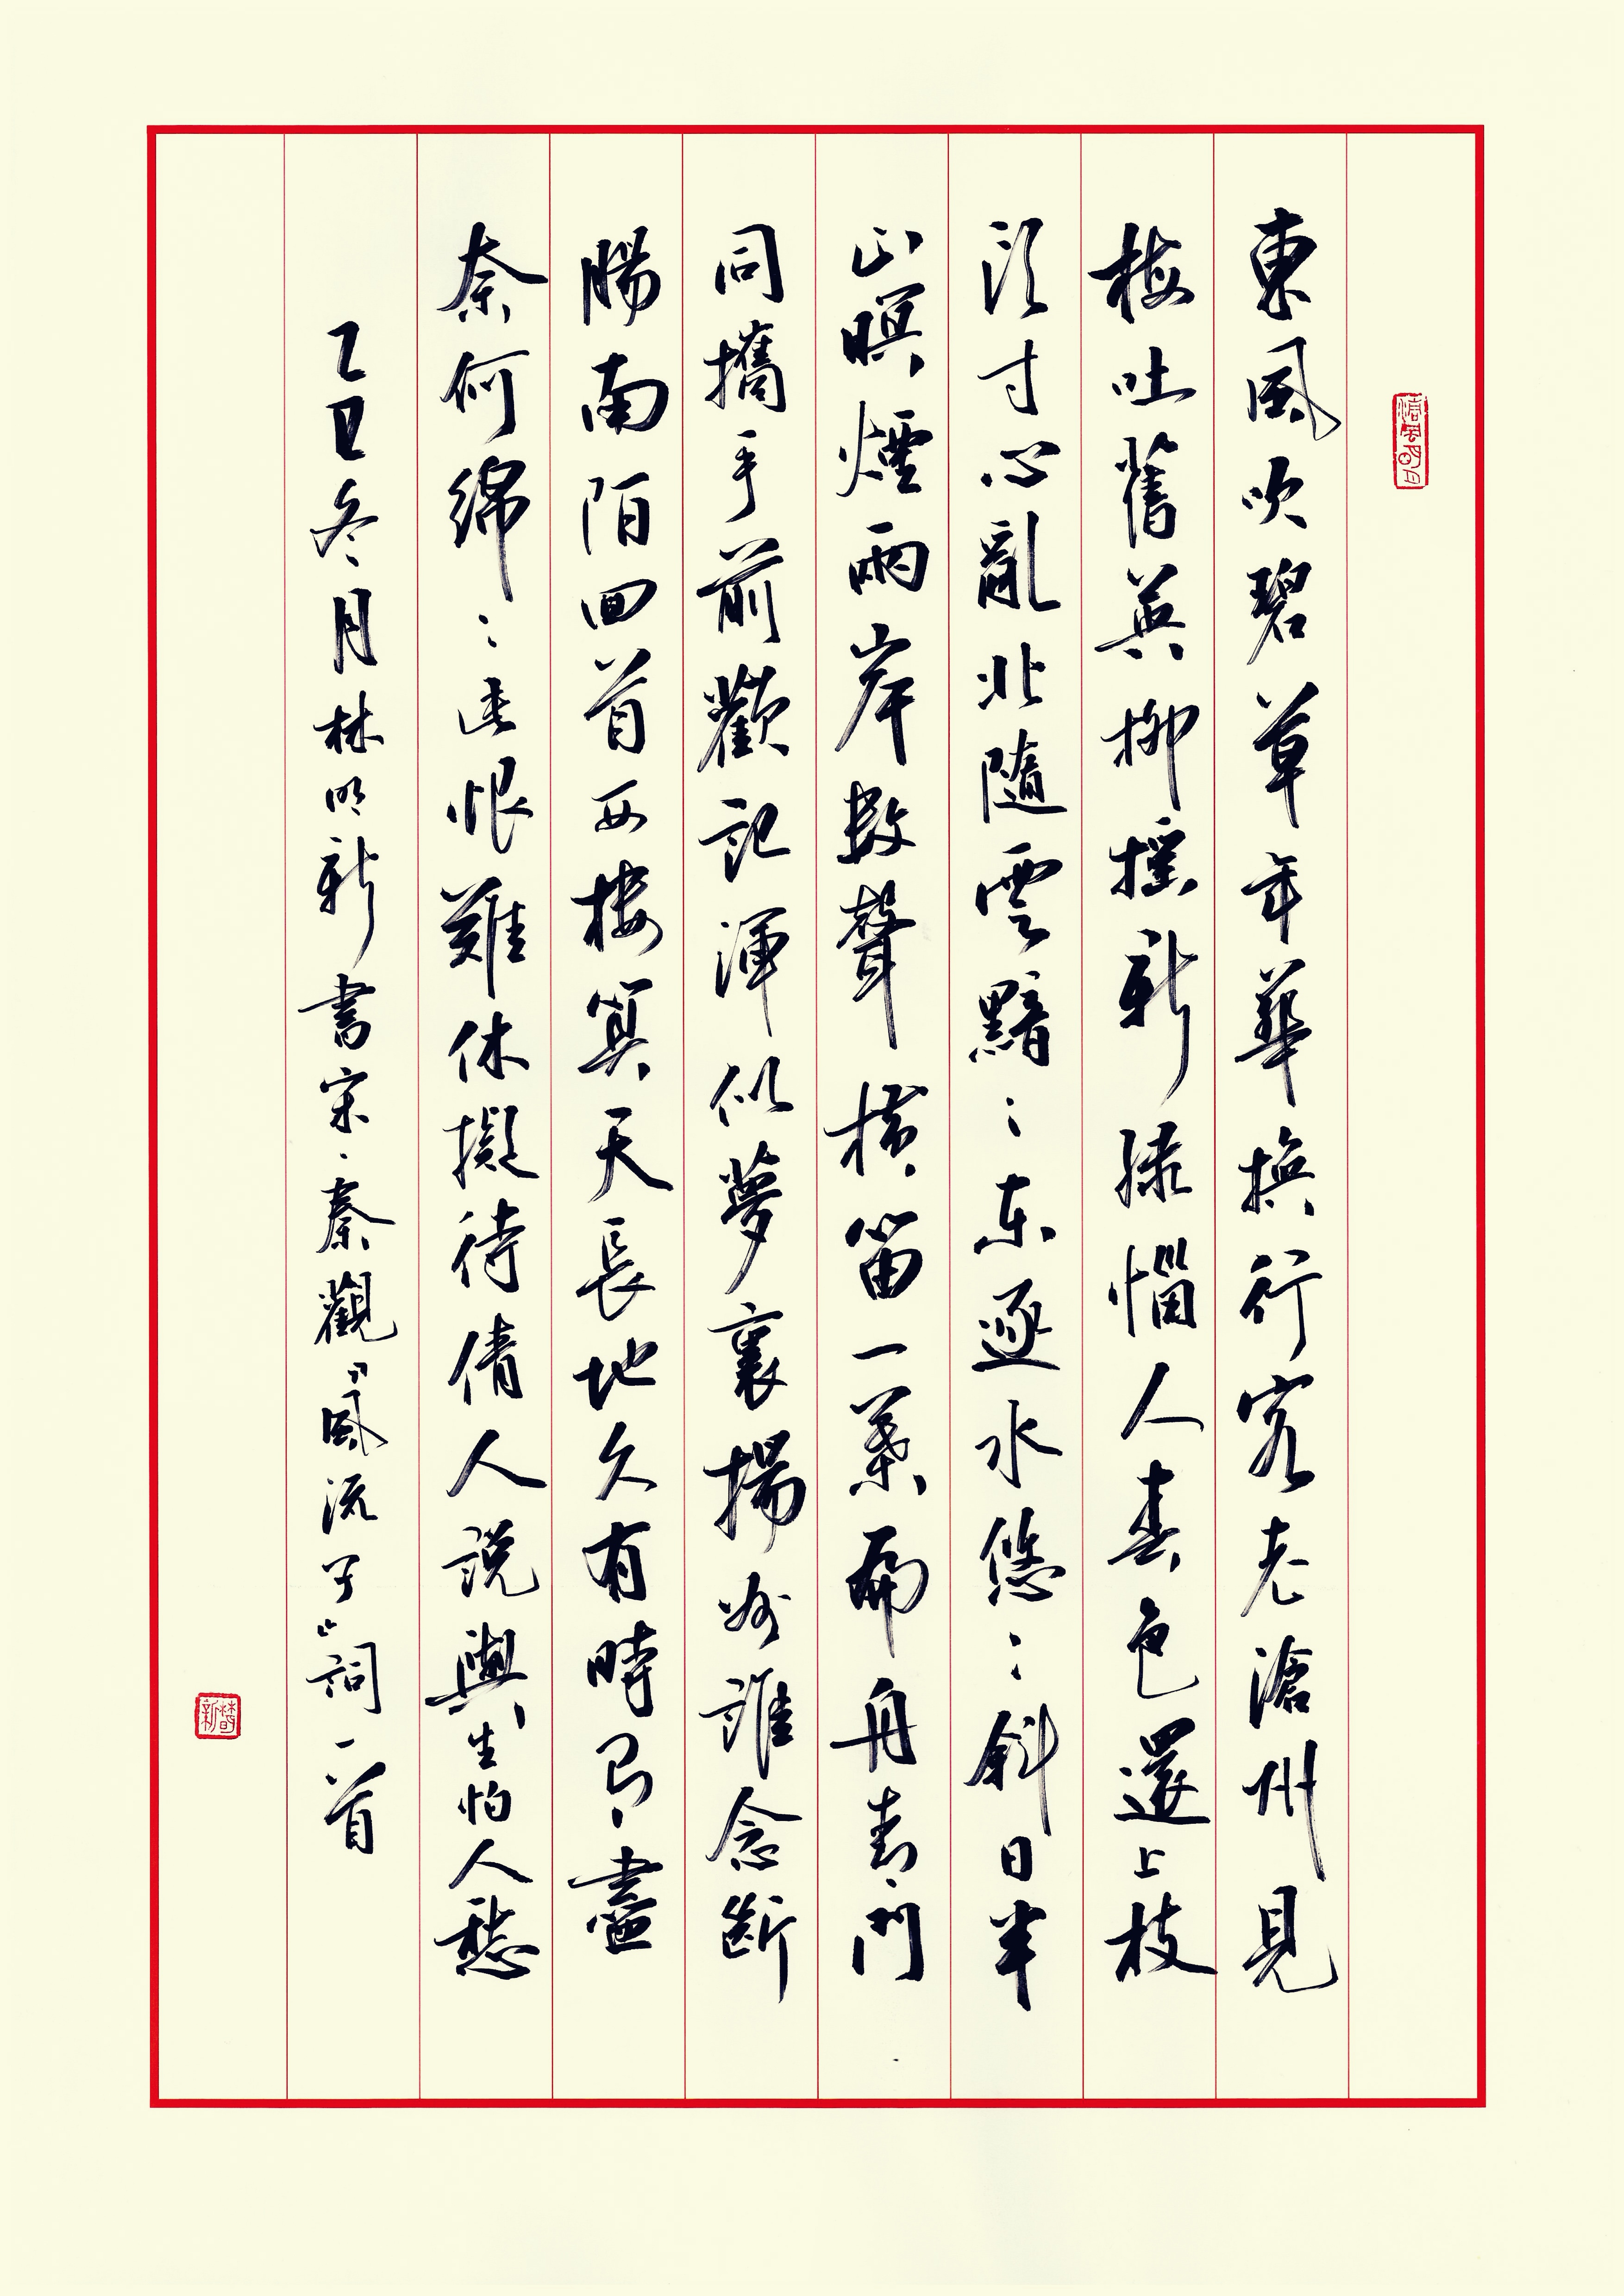 清風明月
東風吹碧草年華換行客老滄州見
梅吐舊英柳摇新緑惱人春色還上枝
頭寸心亂北隨雲黯〻东逐水悠〻斜日半
山暝煙兩岸數聲橫笛一葉扁舟青門
同攜手前歡記渾似夢裏揚州誰念斷
腸南陌回首西樓算天長地久有時有盡
奈何綿〻此恨難休擬待倩人説與生怕人愁
乙巳冬月林明新書宋·秦觀『風流子』詞一首